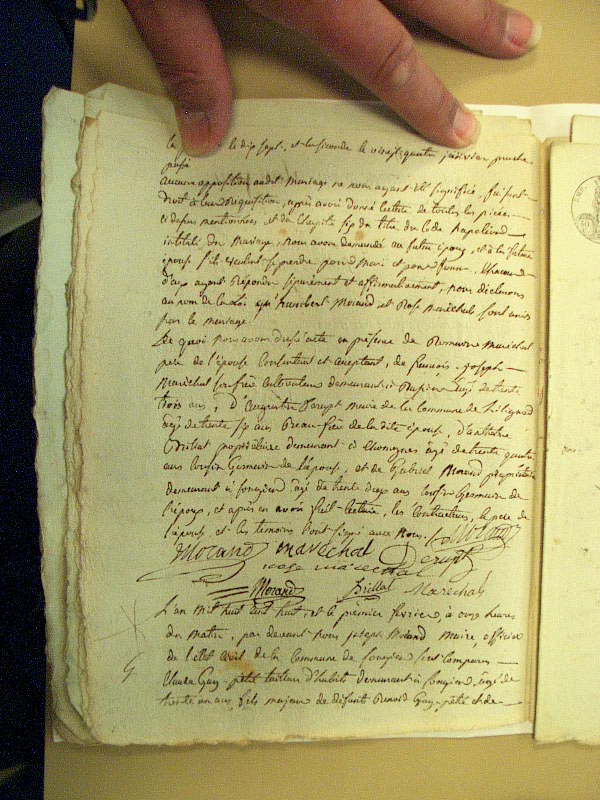 le dix sept, et la seconde le vingt quatre janvier proche
passé
aucune opposition audit mariage ne nous ayant été signifiée, faisant
droit à leur Requisition, après avoir donné lecture de toutes les pièces
ci dessus mentionnées et du Chapitre six du titre du Code Napoléon
intitulé du Mariage, nous avons demandé au futur époux, et à la future
épouse s'ils veulent se prendre pour Mari et pour femme. Chacun
d'eux ayant Répondu séparément et affirmativement, nous déclarons
au nom de la Loi qu'humbert Morand et Rose Maréchal sont unis
par le mariage
De quoi nous avons dressé acte en présence de Maréchal
père de l'épouse Consentant et acceptant, de françois Joseph
Maréchal son frère Cultivateur demeurant à âgé de trente
trois ans, D' Maire de la Commune de
âgé de trente six ans Beau-frère de la dite épouse, d'antoine
Brillat propriétaire demeurant à Chomognes âgé de trente quatre
ans Cousin Germain de l'épouse, et de Gabriel Morand propriétaire
demeurant à songieu âgé de trente deux ans Cousin Germain de
l'époux, et après en avoir fait lecture, les Contractans, le père de
l'épouse, et les témoins l'ont signé avec Nous.
Morand maréchal
rose maréchal
Morand Brillat Maréchal
L'an mil huit cent huit, et le premier février, à onze heures
du Matin, par devant Nous joseph Morand Maire, officier
de l'état Civil de la Commune de songieu sont Comparus
Claude Guy-petit tailleur d'habits demeurant à songieu, âgé de
trente un ans, fils majeur de défunt Guy-petit et de